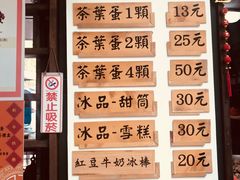 茶葉蛋1顆 13元
茶葉蛋2顆 25元
茶葉蛋4顆 50元
冰品-甜筒 30元
冰品-雪糕 30元
紅豆牛奶冰棒 20元
禁止吸菸